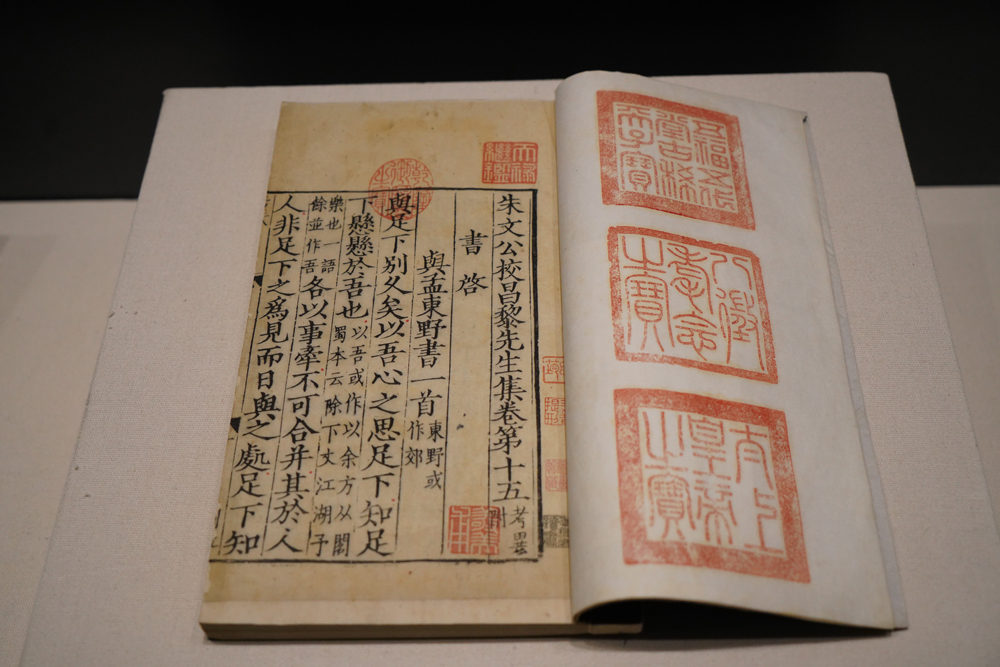 五福五代堂古稀天子寶
八徵耄念之寶
太上皇帝之寶
天祿繼鑑
乾隆御覽之寶
朱文公校昌黎先生集卷第十五 考異附
書啓
與孟東野書一首 東野或作郊
與足下別久矣以吾心之思足下知足
下懸懸於吾也 以吾或作以余方从閣蜀本云除下文江湖子
樂也一語餘並作吾 各以事牽不可合并其於人
人非足下之爲見而日與之處足下知